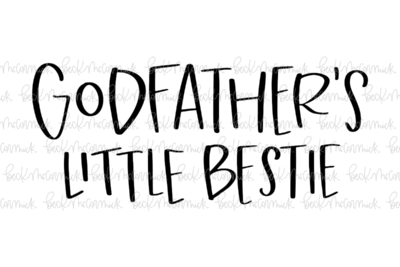 GODFATHER'S
LITTLE BESTIE